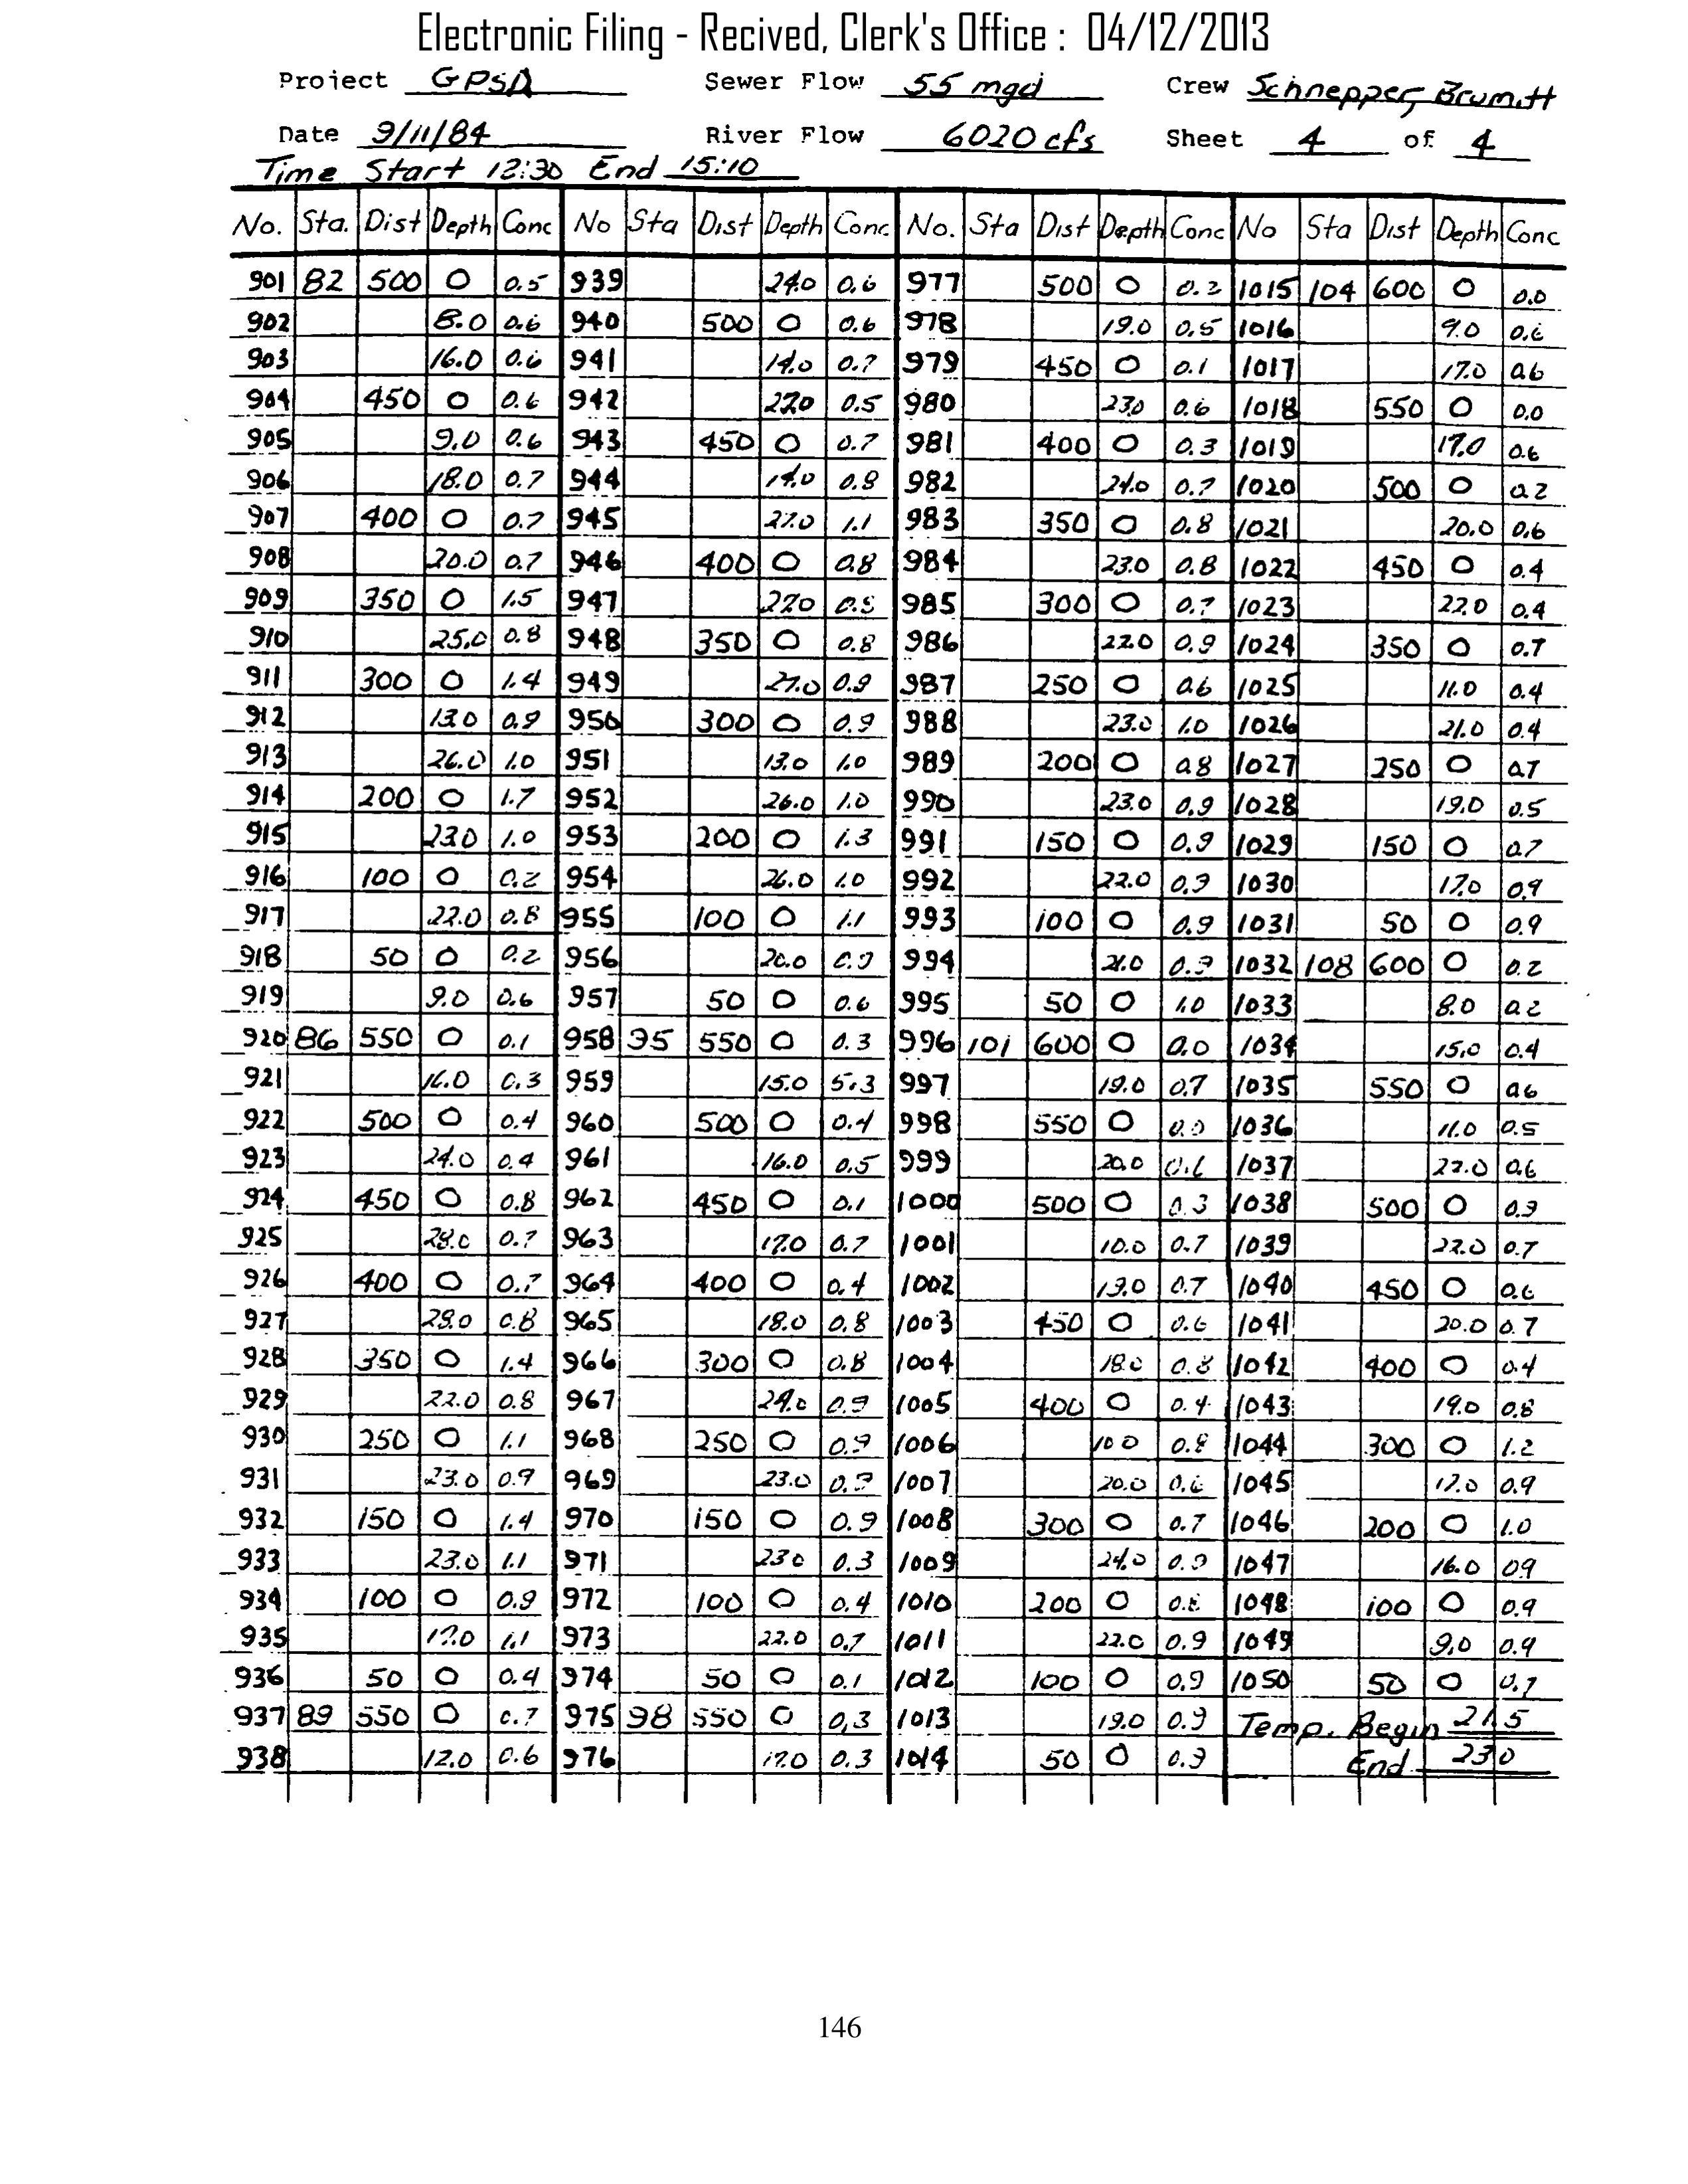 Electronic Filing - Recived, Clerk's Office : 04/12/2013
Project GPSD Sewer Flow 55 mgd Crew Schnepper, Brumitt
Date 9/11/84 River Flow 6020 cfs Sheet 4 of 4
Time Start 12:30 End 15:10
No. Sta. Dist Depth Conc No Sta Dist Depth Conc No. Sta Dist Depth Conc No Sta Dist Depth Conc
901 82 500 0 0.5 939 24.0 0.6 977 500 0 0.2 1015 104 600 0 0.0
902 8.0 0.6 940 500 0 0.6 978 19.0 0.5 1016 9.0 0.6
903 16.0 0.6 941 14.0 0.7 979 450 0 0.1 1017 17.0 0.6
904 450 0 0.6 942 27.0 0.5 980 23.0 0.6 1018 550 0 0.0
905 9.0 0.6 943 450 0 0.7 981 400 0 0.3 1019 17.0 0.6
906 18.0 0.7 944 14.0 0.8 982 24.0 0.7 1020 500 0 0.2
907 400 0 0.7 945 27.0 1.1 983 350 0 0.8 1021 20.0 0.6
908 20.0 0.7 946 400 0 0.8 984 23.0 0.8 1022 450 0 0.4
909 350 0 1.5 947 27.0 985 300 0 0.7 1023 22.0 0.4
910 25.0 0.8 948 350 0 0.8 986 22.0 0.9 1024 350 0 0.7
911 300 0 1.4 949 27.0 0.9 987 250 0 0.6 1025 11.0 0.4
912 13.0 0.9 950 300 0 0.9 988 23.0 1.0 1026 21.0 0.4
913 26.0 1.0 951 13.0 1.0 989 200 0 0.8 1027 250 0 0.7
914 200 0 1.7 952 26.0 1.0 990 23.0 0.9 1028 19.0 0.5
915 23.0 1.0 953 200 0 1.3 991 150 0 0.9 1029 150 0 0.7
916 100 0 0.2 954 26.0 1.0 992 22.0 0.9 1030 17.0 0.9
917 22.0 0.8 955 100 0 1.1 993 100 0 0.9 1031 50 0 0.9
918 50 0 0.2 956 20.0 0.9 994 21.0 0.9 1032 108 600 0 0.2
919 9.0 0.6 957 50 0 0.6 995 50 0 1.0 1033 8.0 0.2
920 86 550 0 0.1 958 95 550 0 0.3 996 101 600 0 0.0 1034 15.0 0.4
921 16.0 0.3 959 15.0 5.3 997 19.0 0.7 1035 550 0 0.6
922 500 0 0.4 960 500 0 0.4 998 550 0 0.0 1036 11.0 0.5
923 24.0 0.4 961 16.0 0.5 999 20.0 0.6 1037 22.0 0.6
924 450 0 0.8 962 450 0 0.1 1000 500 0 0.3 1038 500 0 0.9
925 28.0 0.7 963 17.0 0.7 1001 10.0 0.7 1039 22.0 0.7
926 400 0 0.7 964 400 0 0.4 1002 19.0 0.7 1040 450 0 0.6
927 28.0 0.8 965 18.0 0.8 1003 450 0 0.6 1041 20.0 0.7
928 350 0 1.4 966 300 0 0.8 1004 18.0 0.8 1042 400 0 0.4
929 22.0 0.8 967 24.0 0.9 1005 400 0 0.4 1043 19.0 0.8
930 250 0 1.1 968 250 0 0.9 1006 10.0 0.8 1044 300 0 1.2
931 23.0 0.9 969 23.0 0.9 1007 20.0 0.6 1045 17.0 0.9
932 150 0 1.4 970 150 0 0.9 1008 300 0 0.7 1046 200 0 1.0
933 23.0 1.1 971 23.0 0.3 1009 24.0 0.9 1047 16.0 0.9
934 100 0 0.9 972 100 0 0.4 1010 200 0 1048 100 0 0.9
935 17.0 1.1 973 22.0 0.7 1011 22.0 0.9 1049 9.0 0.9
936 50 0 0.4 974 50 0 0.1 1012 100 0 0.9 1050 50 0 0.7
937 89 550 0 0.7 975 98 550 0 0.3 1013 19.0 0.9 Temp. Begin 21.5
938 12.0 0.6 976 17.0 0.3 1014 50 0 0.9 End 23.0
146